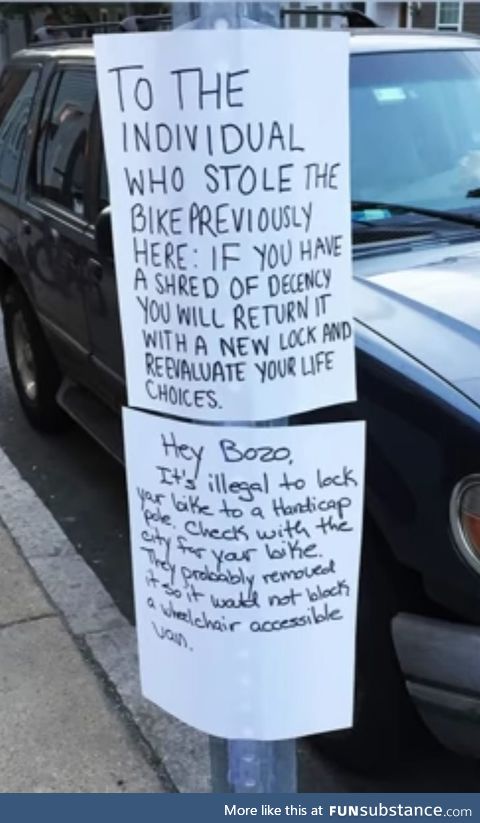 TO THE
INDIVIDUAL
WHO STOLE THE
BIKE PREVIOUSLY
HERE: IF YOU HAVE
A SHRED OF DECENCY
YOU WILL RETURN IT
WITH A NEW LOCK AND
REEVALUATE YOUR LIFE
CHOICES.
Hey Bozo,
It's illegal to lock
your bike to a Handicap
pole. Check with the
city for your bike.
They probably removed
it so it would not block
a wheelchair accessible
van.
More like this at FUNsubstance.com